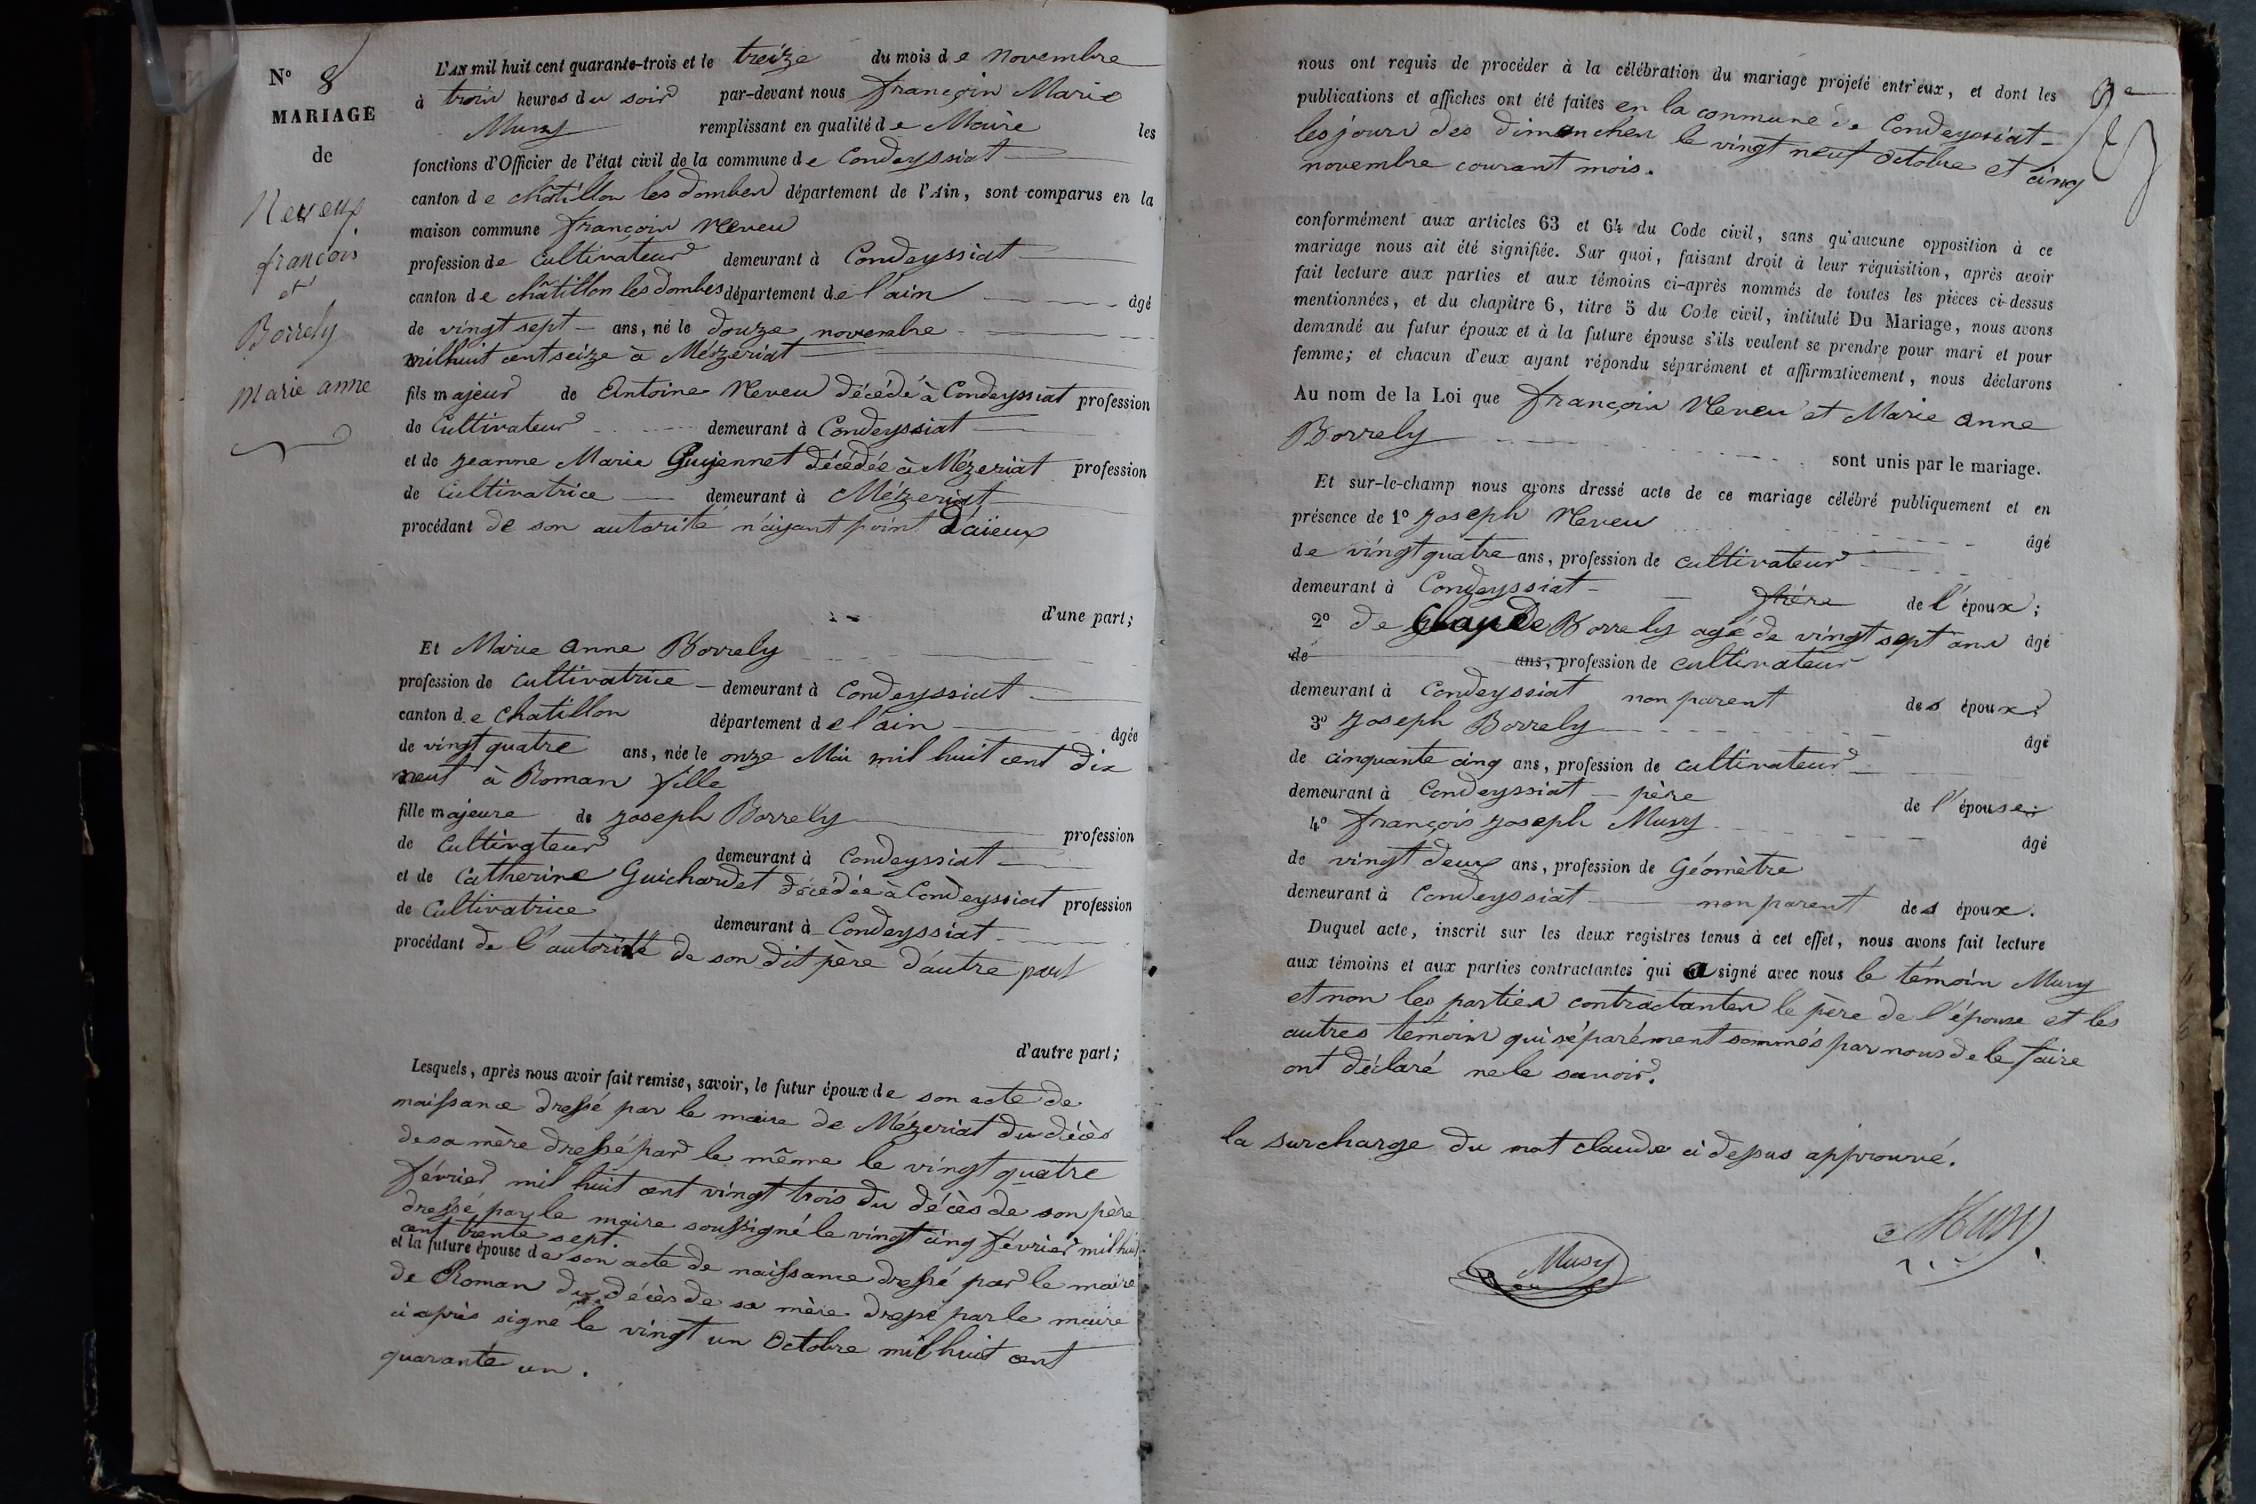 N° 8
MARIAGE
de
Neveux
françois
et
Borrely
marie anne
L'AN mil huit cent quarante-trois et le treize du mois de novembre
à trois heures du soir par-devant nous françois Marie
Musy remplissant en qualité de Maire les
fonctions d'Officier de l'état civil de la commune de Condeyssiat
canton de châtillon les dombes département de l'Ain, sont comparus en la
maison commune françois Neveu
profession de Cultivateur demeurant à Condeyssiat
canton de châtillon les dombes département de l'ain âgé
de vingt sept ans, né le douze novembre
mil huit cent seize à Mézeriat
fils majeur de Antoine Neveu décédé à Condeyssiat profession
de Cultivateur demeurant à Condeyssiat
et de jeanne Marie Guyennet décédée à Mézeriat profession
de Cultivatrice demeurant à Mézeriat
procédant de son autorité n'ayant point d'aïeux
d'une part;
Et Marie anne Borrely
profession de cultivatrice demeurant à Condeyssiat
canton de chatillon département de l'ain âgée
de vingt quatre ans, née le onze Mai mil huit cent dix
neuf à Roman fille
fille majeure de joseph Borrely profession
de Cultivateur demeurant à Condeyssiat
et de Catherine Guichardet décédée à Condeyssiat profession
de Cultivatrice demeurant à Condeyssiat
procédant de l'autorité de son dit père d'autre part
d'autre part;
Lesquels, après nous avoir fait remise, savoir, le futur époux de son acte de
naissance dressé par le maire de Mézeriat du décès
de sa mère dressé par le même le vingt quatre
février mil huit cent vingt trois du décès de son père
dressé par le maire soussigné le vingt cinq février mil huit
cent trente sept.
et la future épouse de son acte de naissance dressé par le maire
de Roman du décès de sa mère dressé par le maire
ci après signé le vingt un Octobre mil huit cent
quarante un.
nous ont requis de procéder à la célébration du mariage projeté entr'eux, et dont les
publications et affiches ont été faites en la commune de Condeyssiat
les jours des dimanches le vingt neuf octobre et cinq
novembre courant mois.
conformément aux articles 63 et 64 du Code civil, sans qu'aucune opposition à ce
mariage nous ait été signifiée. Sur quoi, faisant droit à leur réquisition, après avoir
fait lecture aux parties et aux témoins ci-après nommés de toutes les pièces ci-dessus
mentionnées, et du chapitre 6, titre 5 du Code civil, intitulé Du Mariage, nous avons
demandé au futur époux et à la future épouse s'ils veulent se prendre pour mari et pour
femme; et chacun d'eux ayant répondu séparément et affirmativement, nous déclarons
Au nom de la Loi que françois Neveu et Marie anne
Borrely
sont unis par le mariage.
Et sur-le-champ nous avons dressé acte de ce mariage célébré publiquement et en
présence de 1° joseph Neveu âgé
de vingt quatre ans, profession de cultivateur
demeurant à Condeyssiat frère de l'époux;
2° de Claude Borrely agé de vingt sept ans âgé
de ans, profession de cultivateur
demeurant à Condeyssiat non parent des époux;
3° joseph Borrely âgé
de cinquante cinq ans, profession de cultivateur
demeurant à Condeyssiat père de l'épouse;
4° françois joseph Musy âgé
de vingt deux ans, profession de Géomètre
demeurant à Condeyssiat non parent des époux.
Duquel acte, inscrit sur les deux registres tenus à cet effet, nous avons fait lecture
aux témoins et aux parties contractantes qui a signé avec nous le témoin Musy
et non les parties contractantes le père de l'épouse et les
autres témoins qui séparément sommés par nous de le faire
ont déclaré ne le savoir.
la surcharge du mot claude ci dessus approuvé.
Musy
Musy